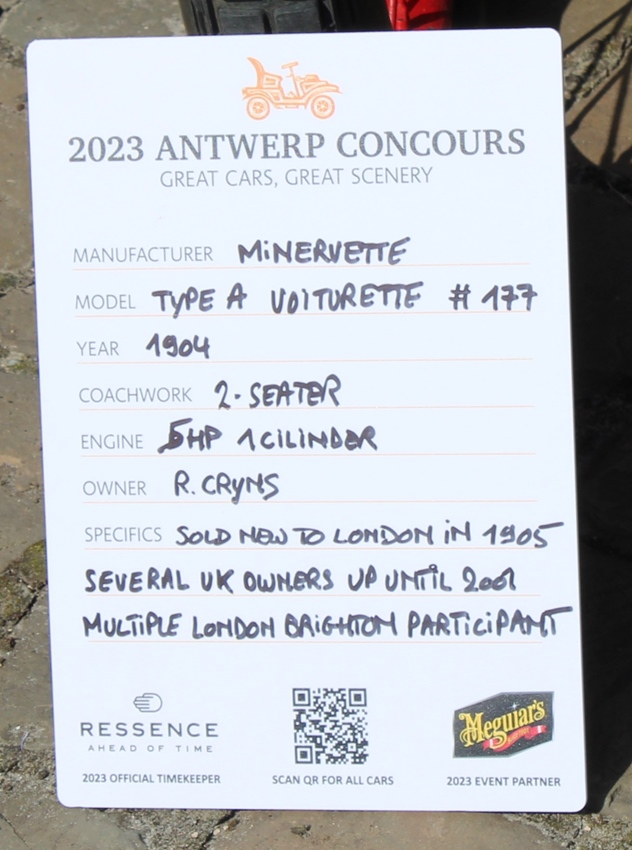 2023 ANTWERP CONCOURS
GREAT CARS, GREAT SCENERY
MANUFACTURER MINERVETTE
MODEL TYPE A VOITURETTE # 177
YEAR 1904
COACHWORK 2-SEATER
ENGINE 5HP 1 CILINDER
OWNER R. CRYNS
SPECIFICS SOLD NEW TO LONDON IN 1905
SEVERAL UK OWNERS UP UNTIL 2001
MULTIPLE LONDON BRIGHTON PARTICIPANT
RESSENCE
AHEAD OF TIME
Meguiar's
2023 OFFICIAL TIMEKEEPER
SCAN QR FOR ALL CARS
2023 EVENT PARTNER